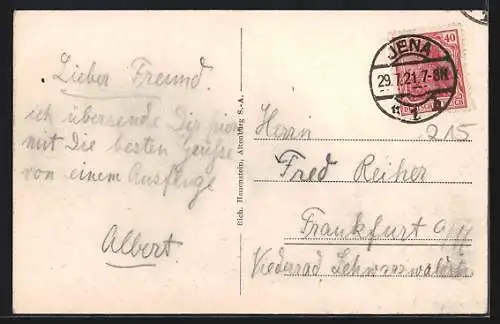 Lieber Freund.
ich übersende Dir hier
mit Die besten Grüße
von einem Ausfluge
Albert
Rich. Hauenstein, Altenburg S.-A.
40
JENA
29.7.21. 7-8N
Herrn
215
Fred Reiher
Frankfurt a/M
Niederrad, Schwarzwaldstr